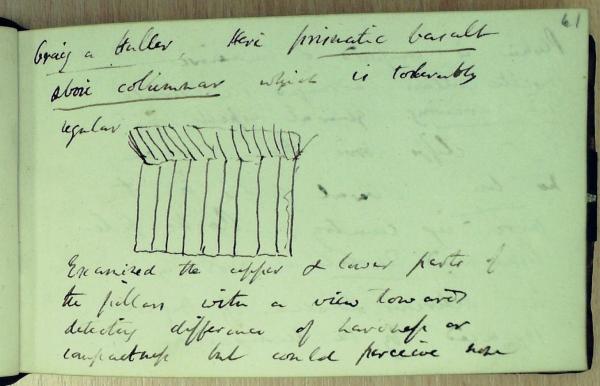 61
Craig a Huller Here prismatic basalt
above columnar which is tolerably
regular
Examined the upper & lower parts of
the pillars with a view towards
detecting difference of hardness or
compactness but could perceive none